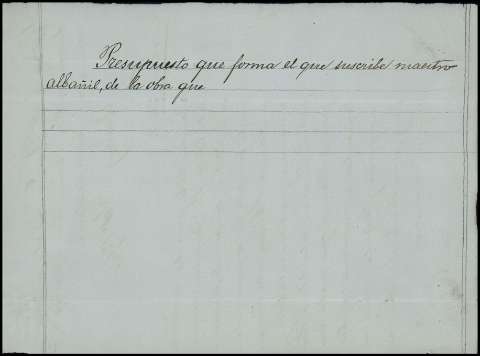 Presupuesto que forma el que suscribe maestro
albañil, de la obra que